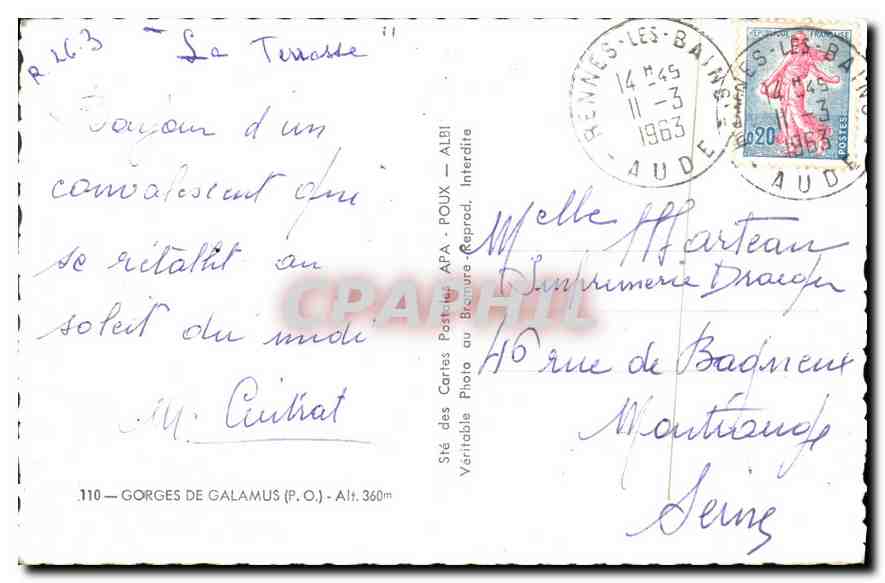 R. 26.3
La Terrasse
Bonjour d'un
convalescent qui
se rétablit au
soleil du midi
M.
110 — GORGES DE GALAMUS (P. O.) - Alt. 360m
Sté des Cartes Postales APA - POUX — ALBI
Véritable Photo au Bromure - Reprod. Interdite
RENNES-LES-BAINS
14 H 45
11 -3
1963
AUDE
RENNES-LES-BAINS
14 H 45
11 -3
1963
AUDE
REPUBLIQUE FRANÇAISE
0,20
POSTES
Melle Marteau
Imprimerie Draeger
46 rue de Bagneux
Montrouge
Seine
CPAPHIL